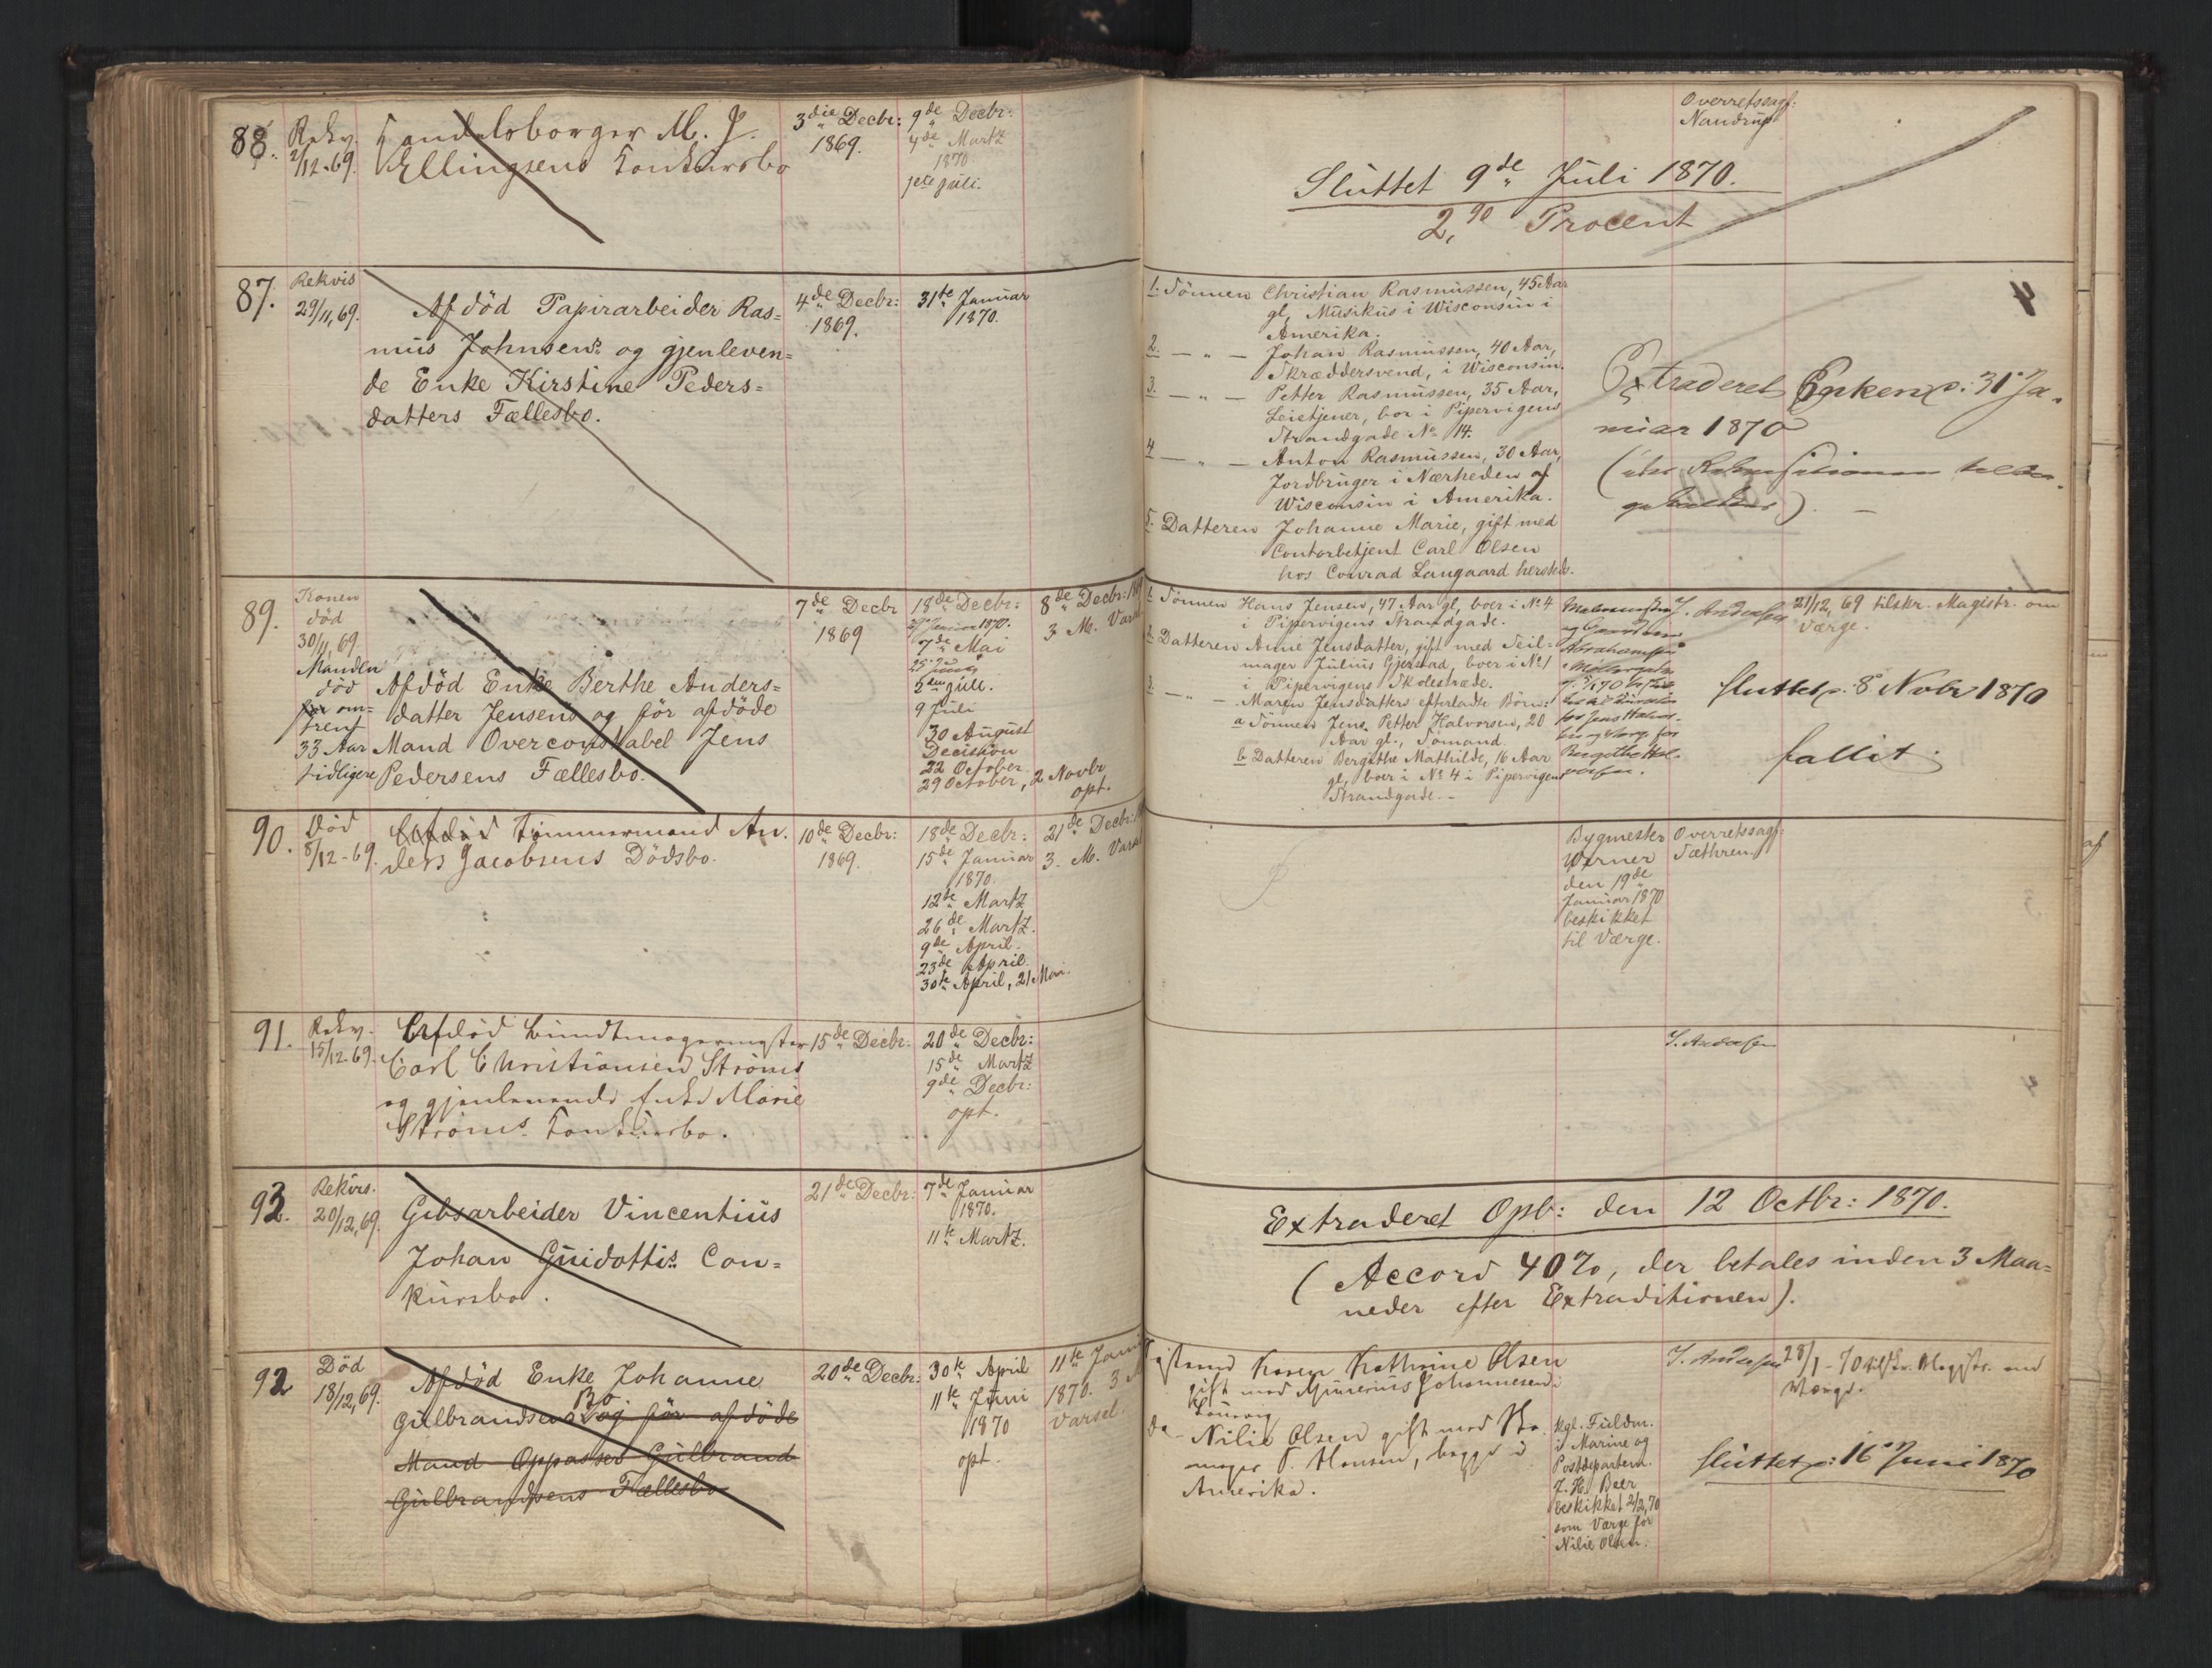 88.
Rekv.
2/12-69.
Handelsborger M. J.
Ellingsens Konkursbo
3die Decbr:
1869.
9de Decbr:
4de Martz
1870
Juli.
Overretssagf:
Nandrup
Sluttet 9de Juli 1870.
2,90 Procent
87.
Rekvis
29/11,69.
Afdöd Papirarbeider Ras=
mus Johnsens og gjenleven=
de Enke Kirstine Peders=
datters Fællesbo.
4de Decbr:
1869.
31te Januar
1870.
1. Sönnen Christian Rasmussen, 45 Aar
gl, Musikus i Wisconsin i
Amerika.
2. — „ — Johan Rasmussen, 40 Aar,
Skræddersvend, i Wisconsin.
3. — „ — Petter Rasmussen, 35 Aar,
Leietjener, bor i Pipervigens
Strandgade No 14.
4 — „ — Anton Rasmussen, 30 Aar,
Jordbruger i Nærheden af
Wisconsin i Amerika.
5. Datteren Johanne Marie, gift med
Contorbetjent Carl Olsen
hos Conrad Langaard hersteds.
Extraderet Enken d: 31 Ja-
nuar 1870
4
89.
Konen
död
30/11,69
Manden
död
for om=
trent
33 Aar
tidligere
Afdöd Enke Berthe Anders=
datter Jensens og för afdöde
Mand Overconstabel Jens
Pedersens Fællesbo.
7de Decbr
1869
18de Decbr:
Januar 1870.
7de Mai
2den Juli.
9 Juli
30 August
Decision
22 October
29 October, 2 Novbr
opt.
8de Decbr:
3 M. Varsel
1. Sönnen Hans Jensen, 47 Aar gl, boer i No 4
i Pipervigens Strandgade.
2. Datteren Anne Jensdatter, gift med Seil=
mager Julius Gjerstad, boer i No 1
i Pipervigens Skolestræde.
3. — „ — Maren Jensdatters efterladte Börn:
a Sönnen Jens Petter Halvorsen, 20
Aar gl., Sömand.
b Datteren Bergithe Mathilde, 16 Aar
gl, boer i No 4 i Pipervigens
Strandgade. -
J. Andersen
21/12, 69 tilskr. Magistr. om
Værge.
Sluttet d: 8 Nobr 1870
fallit.
90.
Död
8/12-69.
Afdöd Tömmermand An-
ders Jacobsens Dödsbo.
10de Decbr:
1869.
18de Decbr:
15de Januar
1870.
12te Martz
26de Martz.
9de April.
23de April.
30te April, 21 Mai.
21de Decbr:
3. M. Varsel
Bygmester
Werner
den 19de
Januar 1870
beskikket
til Værge.
Overretssagf:
Sæthren.
91.
Rekv.
15/12-69.
Afdöd Bundtmagermester
Carl Christiansen Ströms
og gjenlevende Enke Marie
Ströms Konkursbo.
15de Decbr:
20de Decbr:
15de Martz
9de Decbr:
opt.
J. Andersen
93.
Rekvis.
20/12,69.
Gibsarbeider Vincentius
Johan Guidottis Con=
kursbo.
21de Decbr:
7de Januar
1870.
11te Martz.
Extraderet Opb: den 12 Octbr: 1870.
(Accord 40%, der betales inden 3 Maa=
neder efter Extraditionen).
92
Död
18/12,69.
Afdöd Enke Johanne
Bo
Gulbrandsens og för afdöde
Mand Oppasser Gulbrand
Gulbrandsens Fællesbo
20de Decbr:
30te April
11te Juni
1870
opt.
11te
1870. 3
Varsel.
Karen Kathrine Olsen
gift med Johannesen i
Nilie Olsen gift med
mager P. Hansen, begge i
Amerika.
kgl. Fuldm.
i Marine og
Postdepartem.
J. H. Baer
beskikket 2/2,70
som Værge for
Nilie Olsen.
J. Andersen
28/1-70 tilskr. Magistr. om
Værge.
Sluttet d: 16 Juni 1870